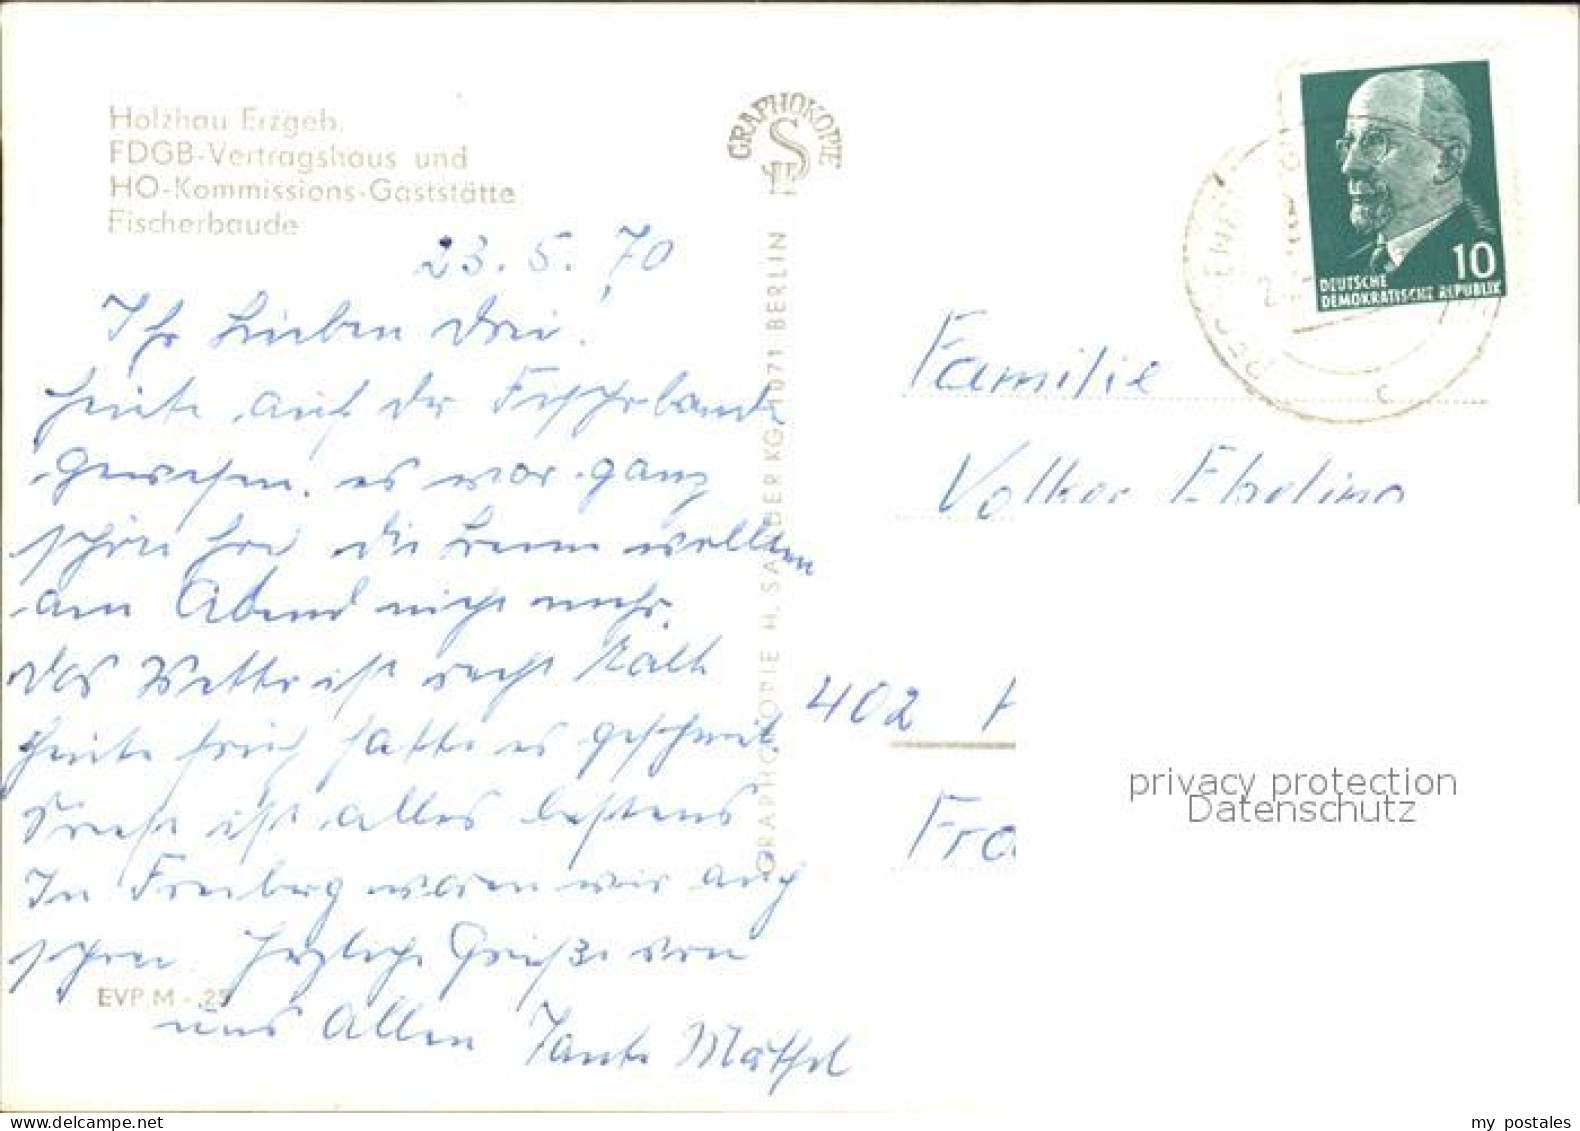 Holzhau Erzgeb.
FDGB-Vertragshaus und
HO-Kommissions-Gaststätte
Fischerbaude
23.5.70
Ihr Lieben Drei!
heute auf der Fischerbaude
gewesen. es war ganz
schön hier die Beine wollten
am Abend nicht mehr.
Das Wetter ist recht kalt
heute früh hatte es geschneit.
Sonst ist alles bestens
In Freiberg waren wir auch
schon. Herzliche Grüße von
uns Allen Tante Mäthel
EVP M -.25
GRAPHOKOPIE
GRAPHOKOPIE H. SAUDER KG, 1071 BERLIN
10
DEUTSCHE
DEMOKRATISCHE REPUBLIK
Familie
Volker Ebeling
402 H
Fra
privacy protection
Datenschutz
my postales